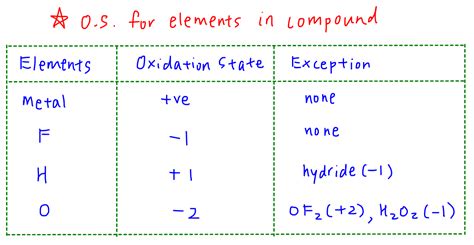 ☆ O.S. for elements in compound
Elements Oxidation State Exception
Metal +ve none
F -1 none
H +1 hydride (-1)
O -2 OF₂ (+2), H₂O₂ (-1)